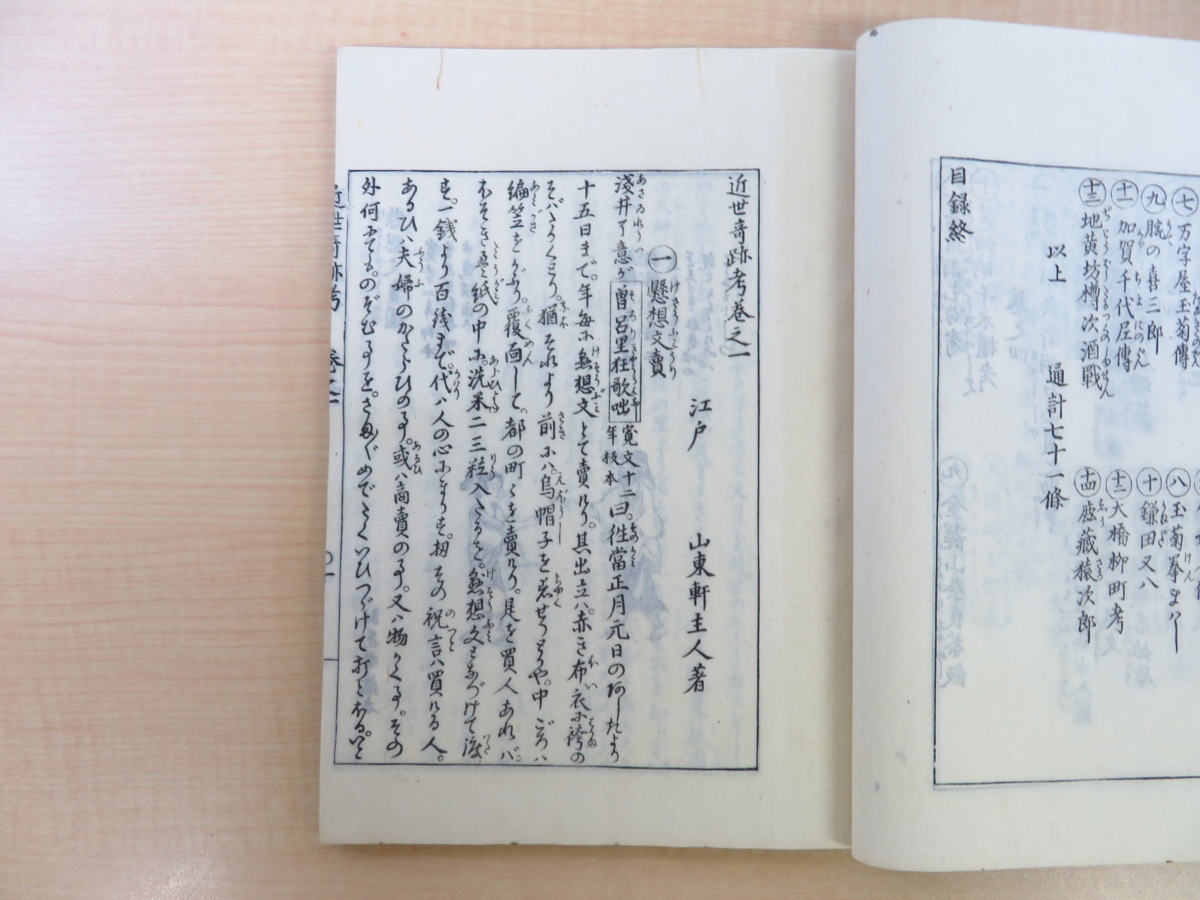 ㊆万字屋玉菊傳
㊇玉菊拳まハし
㊈腕の喜三郎
㊉鎌田又八
⑪加賀千代尼傳
⑫大橋柳町考
⑬地黄坊樽次酒戰
⑭鹿藏猿次郎
以上 通計七十一條
目録終
近世奇跡考卷之一
江戸 山東軒主人著
㊀懸想文賣
淺井了意が曾呂里狂歌咄寛文十二年板本曰。徃當正月元日のあしたより
十五日まで。年毎に懸想文とて賣けり。其出立ハ。赤き布衣に袴の
そばとり。猶それより前にハ。烏帽子を着せりとや。中ごろハ
編笠をかぶり。覆面して。都の町々を賣けり。是を買人あれバ。
ほそき畳紙の中に。洗米二三粒入たるを。懸想文と名づけて渡
す。一錢より百錢まで。代ハ人の心にまかす。扨その祝言ハ買ける人。
あるひハ夫婦のかたらひの事。或ハ商賣の事。又ハ物かく事。その
外何にても。のぞむ事を。さまざまめでたくいひつづけて打とほる。いと
近世奇跡考 卷之一 〇一